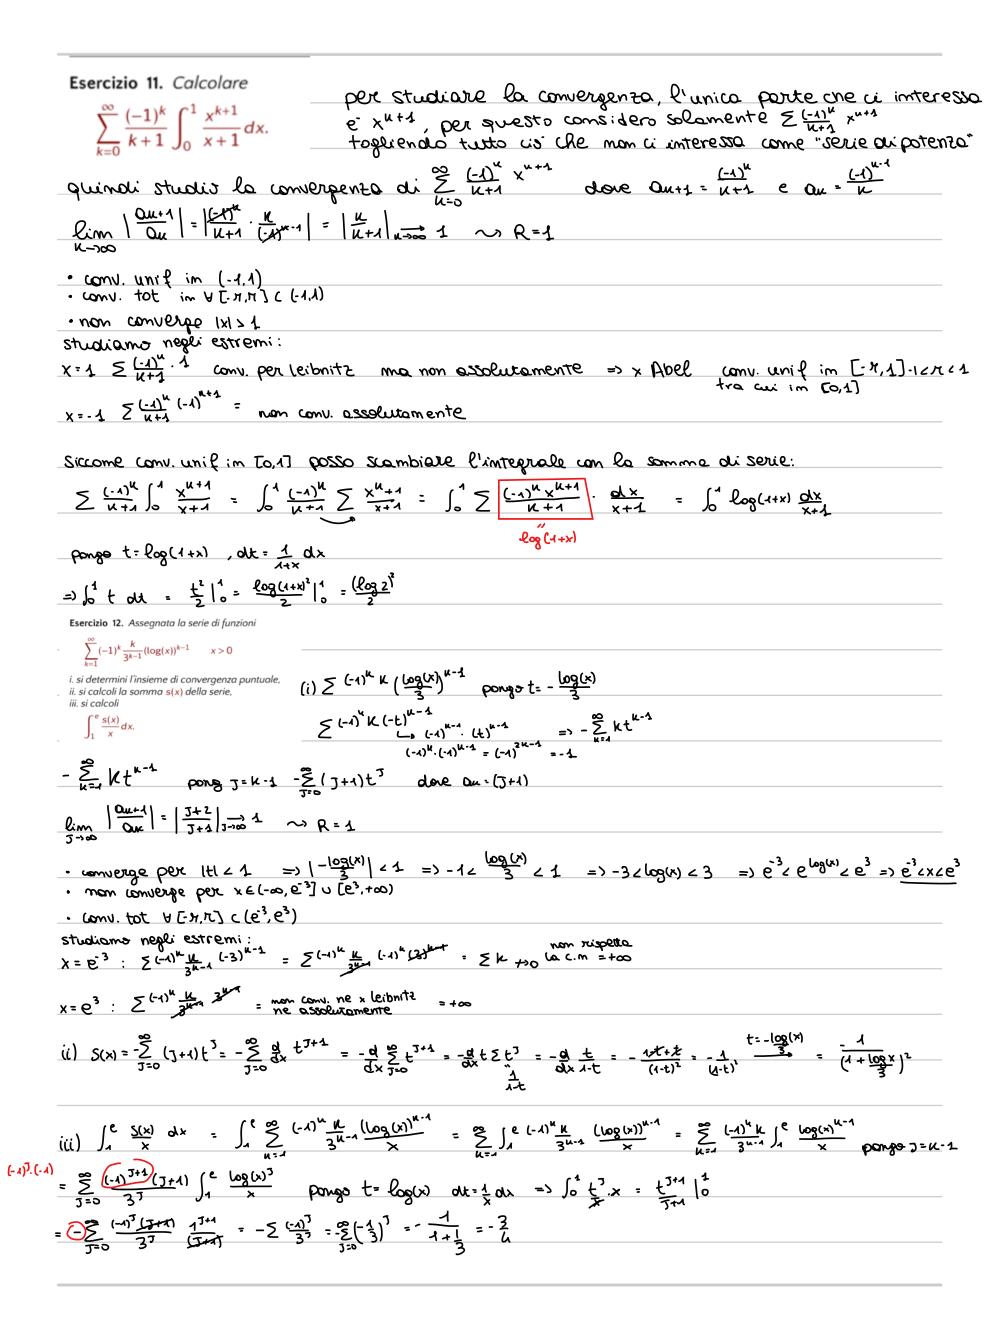 Esercizio 11. Calcolare
∞∑k=0 (-1)^k/(k+1) ∫₀¹ x^{k+1}/(x+1) dx.
per studiare la convergenza, l'unica parte che ci interessa
e' x^{k+1}, per questo considero solamente ∑ (-1)^k/(k+1) x^{k+1}
togliendo tutto cio' che non ci interessa come "serie di potenza"
quindi studio la convergenza di ∞∑k=0 (-1)^k/(k+1) x^{k+1} dove ak+1 = (-1)^k/(k+1) e ak = (-1)^{k-1}/k
lim k→∞ |ak+1/ak| = |(-1)^k/(k+1) · k/(-1)^{k-1}| = |k/(k+1)| k→∞ → 1 ⇝ R=1
• conv. unif in (-1,1)
• conv. tot in ∀ [-r,r] ⊂ (-1,1)
• non converge |x|>1
studiamo negli estremi:
x=1 ∑ (-1)^k/(k+1) · 1 conv. per leibnitz ma non assolutamente ⇒ x Abel conv. unif in [-r,1] -1<r<1
tra cui in [0,1]
x=-1 ∑ (-1)^k/(k+1) (-1)^{k+1} = non conv. assolutamente
Siccome conv. unif in [0,1] posso scambiare l'integrale con la somma di serie:
∑ (-1)^k/(k+1) ∫₀¹ x^{k+1}/(x+1) = ∫₀¹ (-1)^k/(k+1) ∑ x^{k+1}/(x+1) = ∫₀¹ ∑ (-1)^k x^{k+1}/(k+1) · dx/(x+1) = ∫₀¹ log(1+x) dx/(x+1)
"
log(1+x)
pongo t=log(1+x) , dt = 1/(1+x) dx
⇒ ∫₀¹ t dt = t²/2 |₀¹ = log(1+x)²/2 |₀¹ = (log 2)²/2
Esercizio 12. Assegnata la serie di funzioni
∞∑k=1 (-1)^k k/3^{k-1} (log(x))^{k-1} x > 0
i. si determini l'insieme di convergenza puntuale,
ii. si calcoli la somma s(x) della serie,
iii. si calcoli
∫₁ᵉ s(x)/x dx.
(i) ∑ (-1)^k k (log(x)/3)^{k-1} pongo t = - log(x)/3
∑ (-1)^k k (-t)^{k-1} ⇒ - ∞∑k=1 k t^{k-1}
↳ (-1)^{k-1} · (t)^{k-1}
(-1)^k · (-1)^{k-1} = (-1)^{2k-1} = -1
- ∞∑k=1 k t^{k-1} pong J=k-1 - ∞∑J=0 (J+1) t^J dove ak = (J+1)
lim J→∞ |ak+1/ak| = |J+2/J+1| J→∞ → 1 ⇝ R=1
• converge per |t|<1 ⇒ |-log(x)/3| < 1 ⇒ -1 < log(x)/3 < 1 ⇒ -3<log(x)<3 ⇒ e^{-3} < e^{log(x)} < e^3 ⇒ e^{-3}<x<e^3
• non converge per x∈(-∞,e^{-3}] ∪ [e^3,+∞)
• conv. tot ∀ [-r,r] ⊂ (e^{-3},e^3)
studiamo negli estremi:
x = e^{-3} : ∑ (-1)^k k/3^{k-1} (-3)^{k-1} = ∑ (-1)^k k/3^{k-1} (-1)^k (3)^{k-1} = ∑ k ↛ 0 non rispetta la c.n = +∞
x = e^3 : ∑ (-1)^k k/3^{k-1} 3^{k-1} = non conv. ne x leibnitz ne assolutamente = +∞
ii) S(x) = -∞∑J=0 (J+1) t^J = -∞∑J=0 d/dx t^{J+1} = -d/dx ∞∑J=0 t^{J+1} = -d/dx t ∑ t^J = -d/dx t/(1-t) = - (1-t+t)/(1-t)² = -1/(1-t)² t=-log(x)/3 → = 1/(1+log x/3)²
"
1/(1-t)
iii) ∫₁ᵉ S(x)/x dx = ∫₁ᵉ ∞∑k=1 (-1)^k k/3^{k-1} (log(x))^{k-1}/x = ∞∑k=1 ∫₁ᵉ (-1)^k k/3^{k-1} (log(x))^{k-1}/x = ∞∑k=1 (-1)^k k/3^{k-1} ∫₁ᵉ log(x)^{k-1}/x pongo J=k-1
(-1)^J·(-1)
= ∞∑J=0 (-1)^{J+1} (J+1)/3^J ∫₁ᵉ log(x)^J/x pongo t = log(x) dt = 1/x dx ⇒ ∫₀¹ t^J/x · x = t^{J+1}/(J+1) |₀¹
= -∞∑J=0 (-1)^J (J+1)/3^J 1^{J+1}/(J+1) = -∑ (-1)^J/3^J = -∞∑J=0 (-1/3)^J = - 1/(1+1/3) = - 3/4